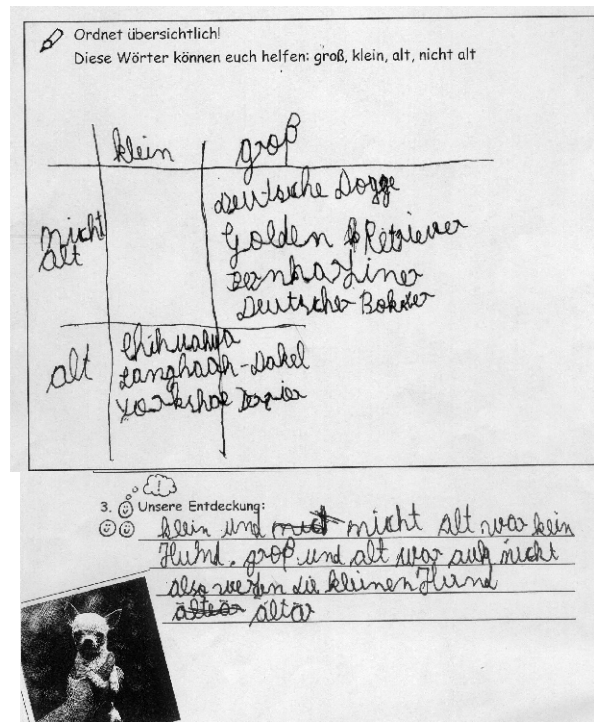 Ordnet übersichtlich!
Diese Wörter können euch helfen: groß, klein, alt, nicht alt
klein groß
nicht
alt
Deutsche Dogge
Golden Retriever
Bernhardiner
Deutscher Bokser
alt
Chihuahua
Langhaah-Dakel
Yorkshae Terrier
3. Unsere Entdeckung:
klein und nicht alt war kein
Huhnd. groß und alt war auch nicht
also werden die kleinen Hund
ältär